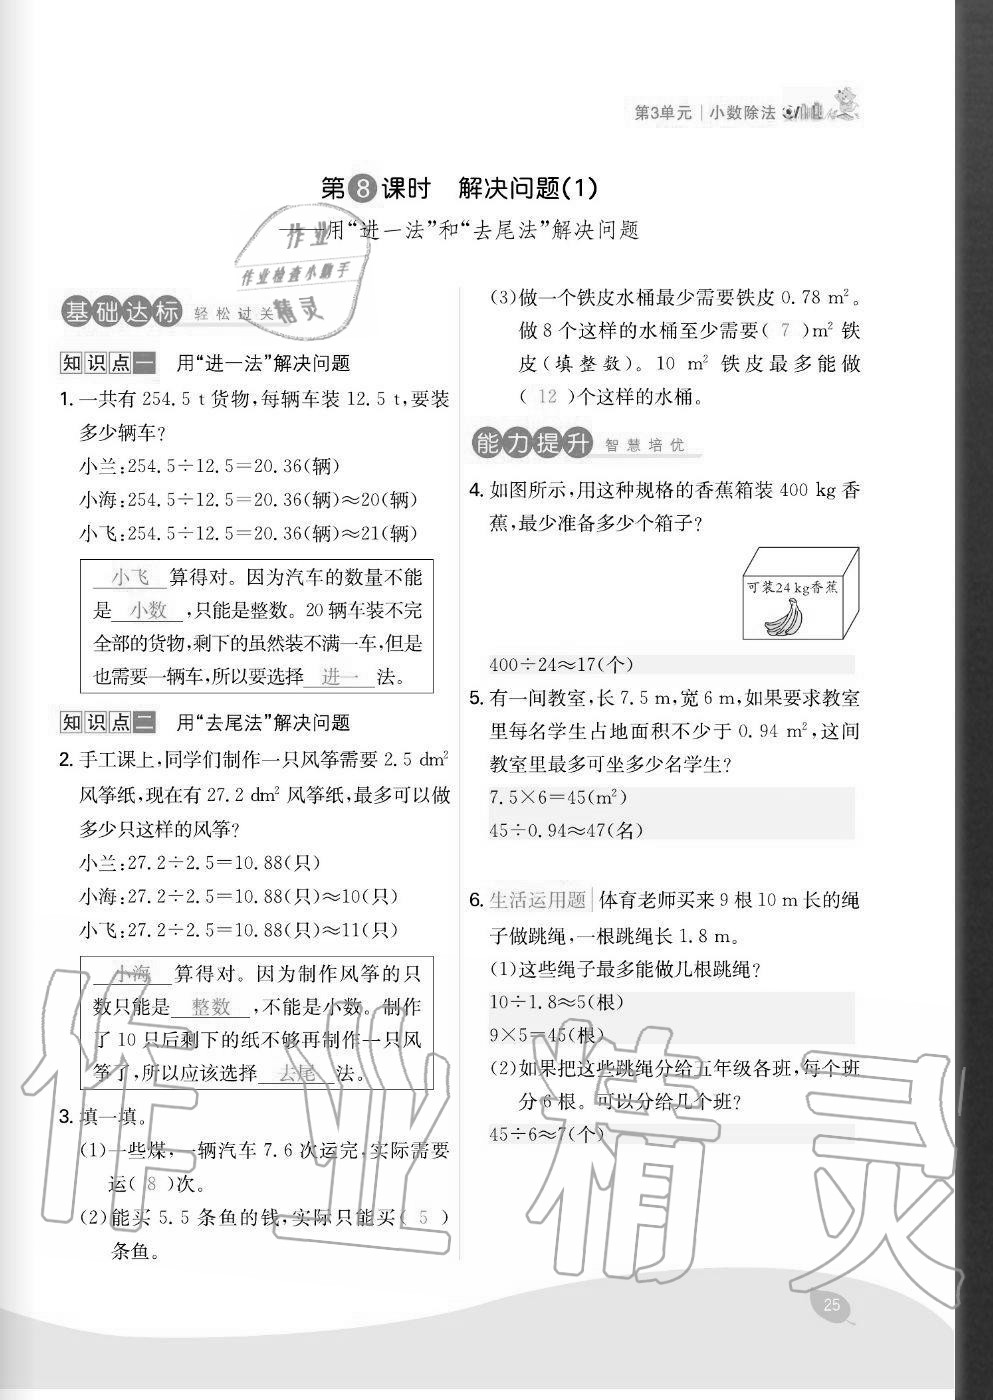 第3单元 | 小数除法
第8课时 解决问题(1)
——用“进一法”和“去尾法”解决问题
作业
作业检查小助手
精灵
基础达标 轻松过关
知识点一 用“进一法”解决问题
1. 一共有 254.5 t 货物,每辆车装 12.5 t,要装
多少辆车?
小兰:254.5÷12.5=20.36(辆)
小海:254.5÷12.5=20.36(辆)≈20(辆)
小飞:254.5÷12.5=20.36(辆)≈21(辆)
小飞 算得对。因为汽车的数量不能
是 小数 ,只能是整数。20 辆车装不完
全部的货物,剩下的虽然装不满一车,但是
也需要一辆车,所以要选择 进一 法。
知识点二 用“去尾法”解决问题
2. 手工课上,同学们制作一只风筝需要 2.5 dm²
风筝纸,现在有 27.2 dm² 风筝纸,最多可以做
多少只这样的风筝?
小兰:27.2÷2.5=10.88(只)
小海:27.2÷2.5=10.88(只)≈10(只)
小飞:27.2÷2.5=10.88(只)≈11(只)
小海 算得对。因为制作风筝的只
数只能是 整数 ,不能是小数。制作
了 10 只后剩下的纸不够再制作一只风
筝了,所以应该选择 去尾 法。
3. 填一填。
(1)一些煤,一辆汽车 7.6 次运完,实际需要
运( 8 )次。
(2)能买 5.5 条鱼的钱,实际只能买( 5 )
条鱼。
(3)做一个铁皮水桶最少需要铁皮 0.78 m²。
做 8 个这样的水桶至少需要( 7 )m² 铁
皮(填整数)。10 m² 铁皮最多能做
( 12 )个这样的水桶。
能力提升 智慧培优
4. 如图所示,用这种规格的香蕉箱装 400 kg 香
蕉,最少准备多少个箱子?
可装24 kg香蕉
400÷24≈17(个)
5. 有一间教室,长 7.5 m,宽 6 m,如果要求教室
里每名学生占地面积不少于 0.94 m²,这间
教室里最多可坐多少名学生?
7.5×6=45(m²)
45÷0.94≈47(名)
6. 生活运用题 | 体育老师买来 9 根 10 m 长的绳
子做跳绳,一根跳绳长 1.8 m。
(1)这些绳子最多能做几根跳绳?
10÷1.8≈5(根)
9×5=45(根)
(2)如果把这些跳绳分给五年级各班,每个班
分 6 根。可以分给几个班?
45÷6≈7(个)
作业精灵
25